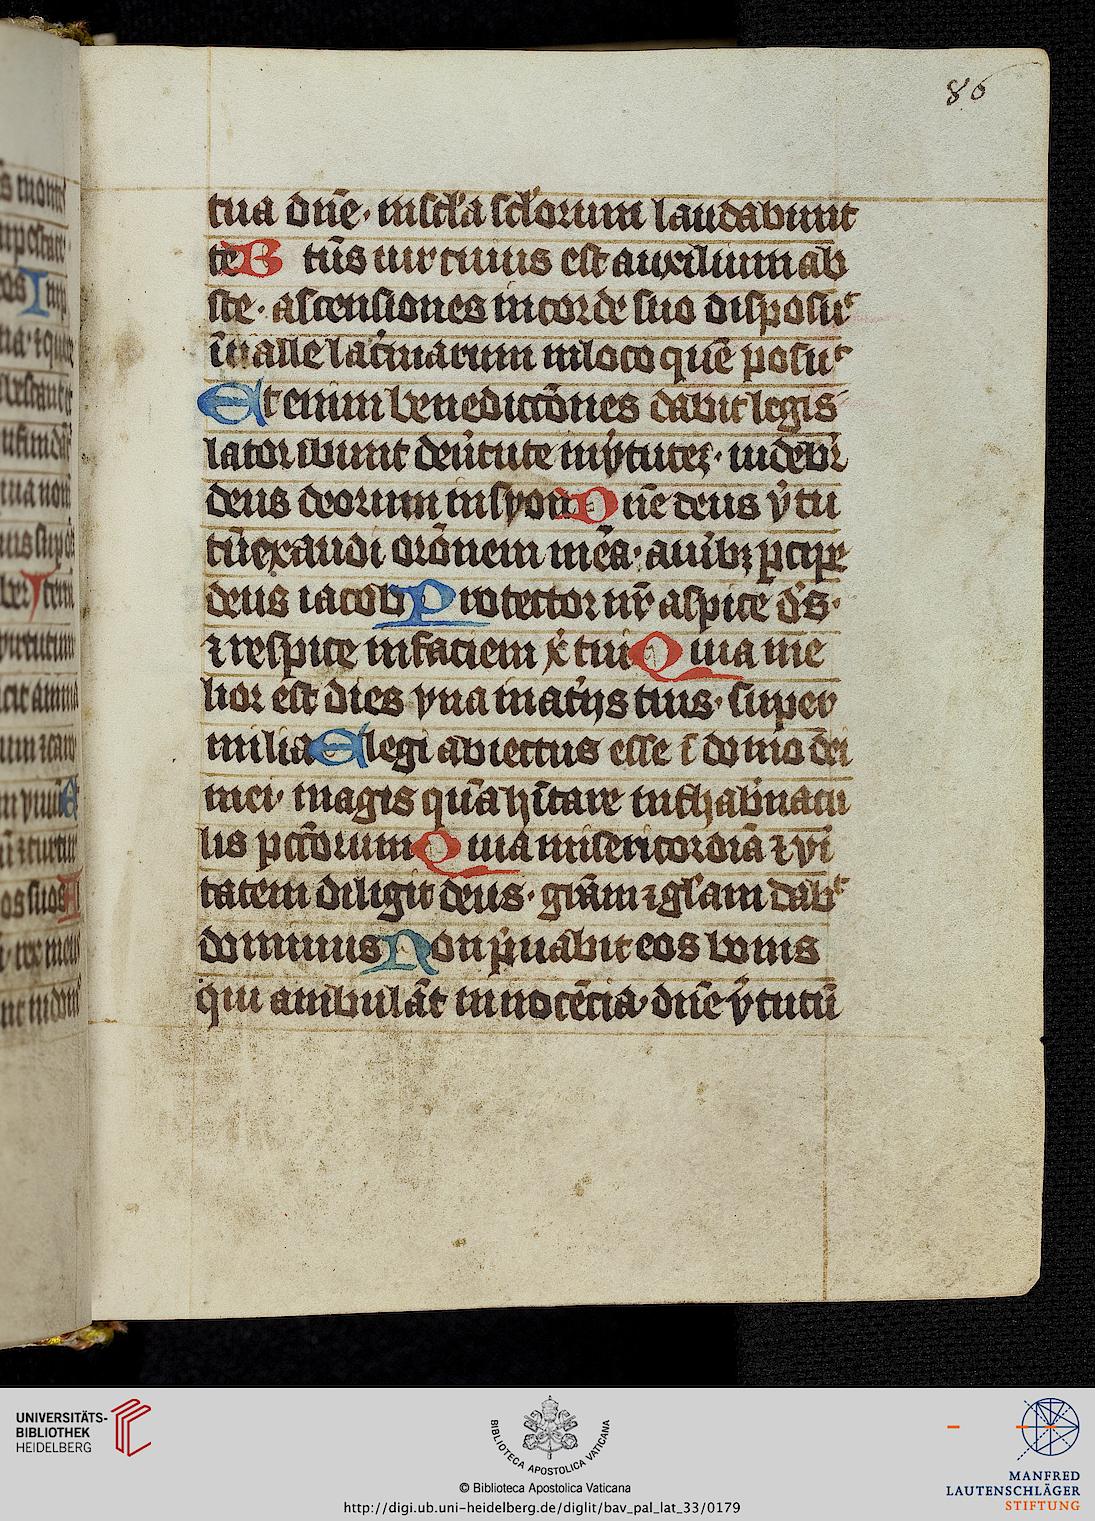 86
tua dn̄e· in scl̓a scl̓orum laudabunt
te B tūs uir cuius est auxilium ab
s te· ascensiones in corde suo disposuᵗ
ī ualle lac̓marum in loco quē posuᵗ
Et enim benedict̄ones dabit legis
lator ibunt de u̓tute in v̓tutez· uidebr̄
deus deorum in syon Dn̄e deus v̓tu
tū exaudi or̄onem mēa· auribȝ p̱cipe
deus iacob Protector nr̄ aspice d̓s·
⁊ respice in faciem x̓ tui Quia me
lior est dies vna in at̓ijs tuis· super
milia Elegi abiectus esse ī domo dei
mei· magis quā hītare in thab̓nacu
lis pctōrum Quia misericordiā ⁊ v̓i
tatem diligit deus· grām ⁊ gl̓am dabᵗ
dominus Non p̓uabit eos bonis
qui ambulāt in nocēcia· dn̄e v̓tutū
UNIVERSITÄTS-
BIBLIOTHEK
HEIDELBERG
BIBLIOTECA APOSTOLICA VATICANA
© Biblioteca Apostolica Vaticana
http://digi.ub.uni-heidelberg.de/diglit/bav_pal_lat_33/0179
MANFRED
LAUTENSCHLÄGER
STIFTUNG